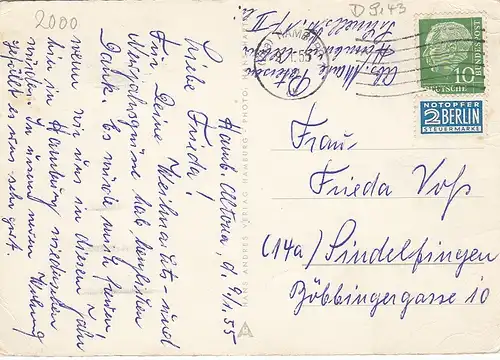 2000
D Sp 43
HAMBURG
1.55
10
DEUTSCHE
BUNDESPOST
NOTOPFER
2 BERLIN
STEUERMARKE
Abs. Marie Petersen
Hamburg-
Hamb. Altona, d. 9/1.55
Liebe Frieda!
Für Deine Weihnachts- und
Neujahrsgrüße hab herzlichen
Dank. Es würde mich freuen
wenn wir uns in diesem Jahr
hier in Hamburg wiedersehen
würden. In unserer neuen Wohnung
gefällt es uns sehr gut.
HANS ANDRES VERLAG HAMBURG / PHOTO: HANS HARTZ
Frau
Frieda Voß
(14a) Sindelfingen
Böbbingergasse 10